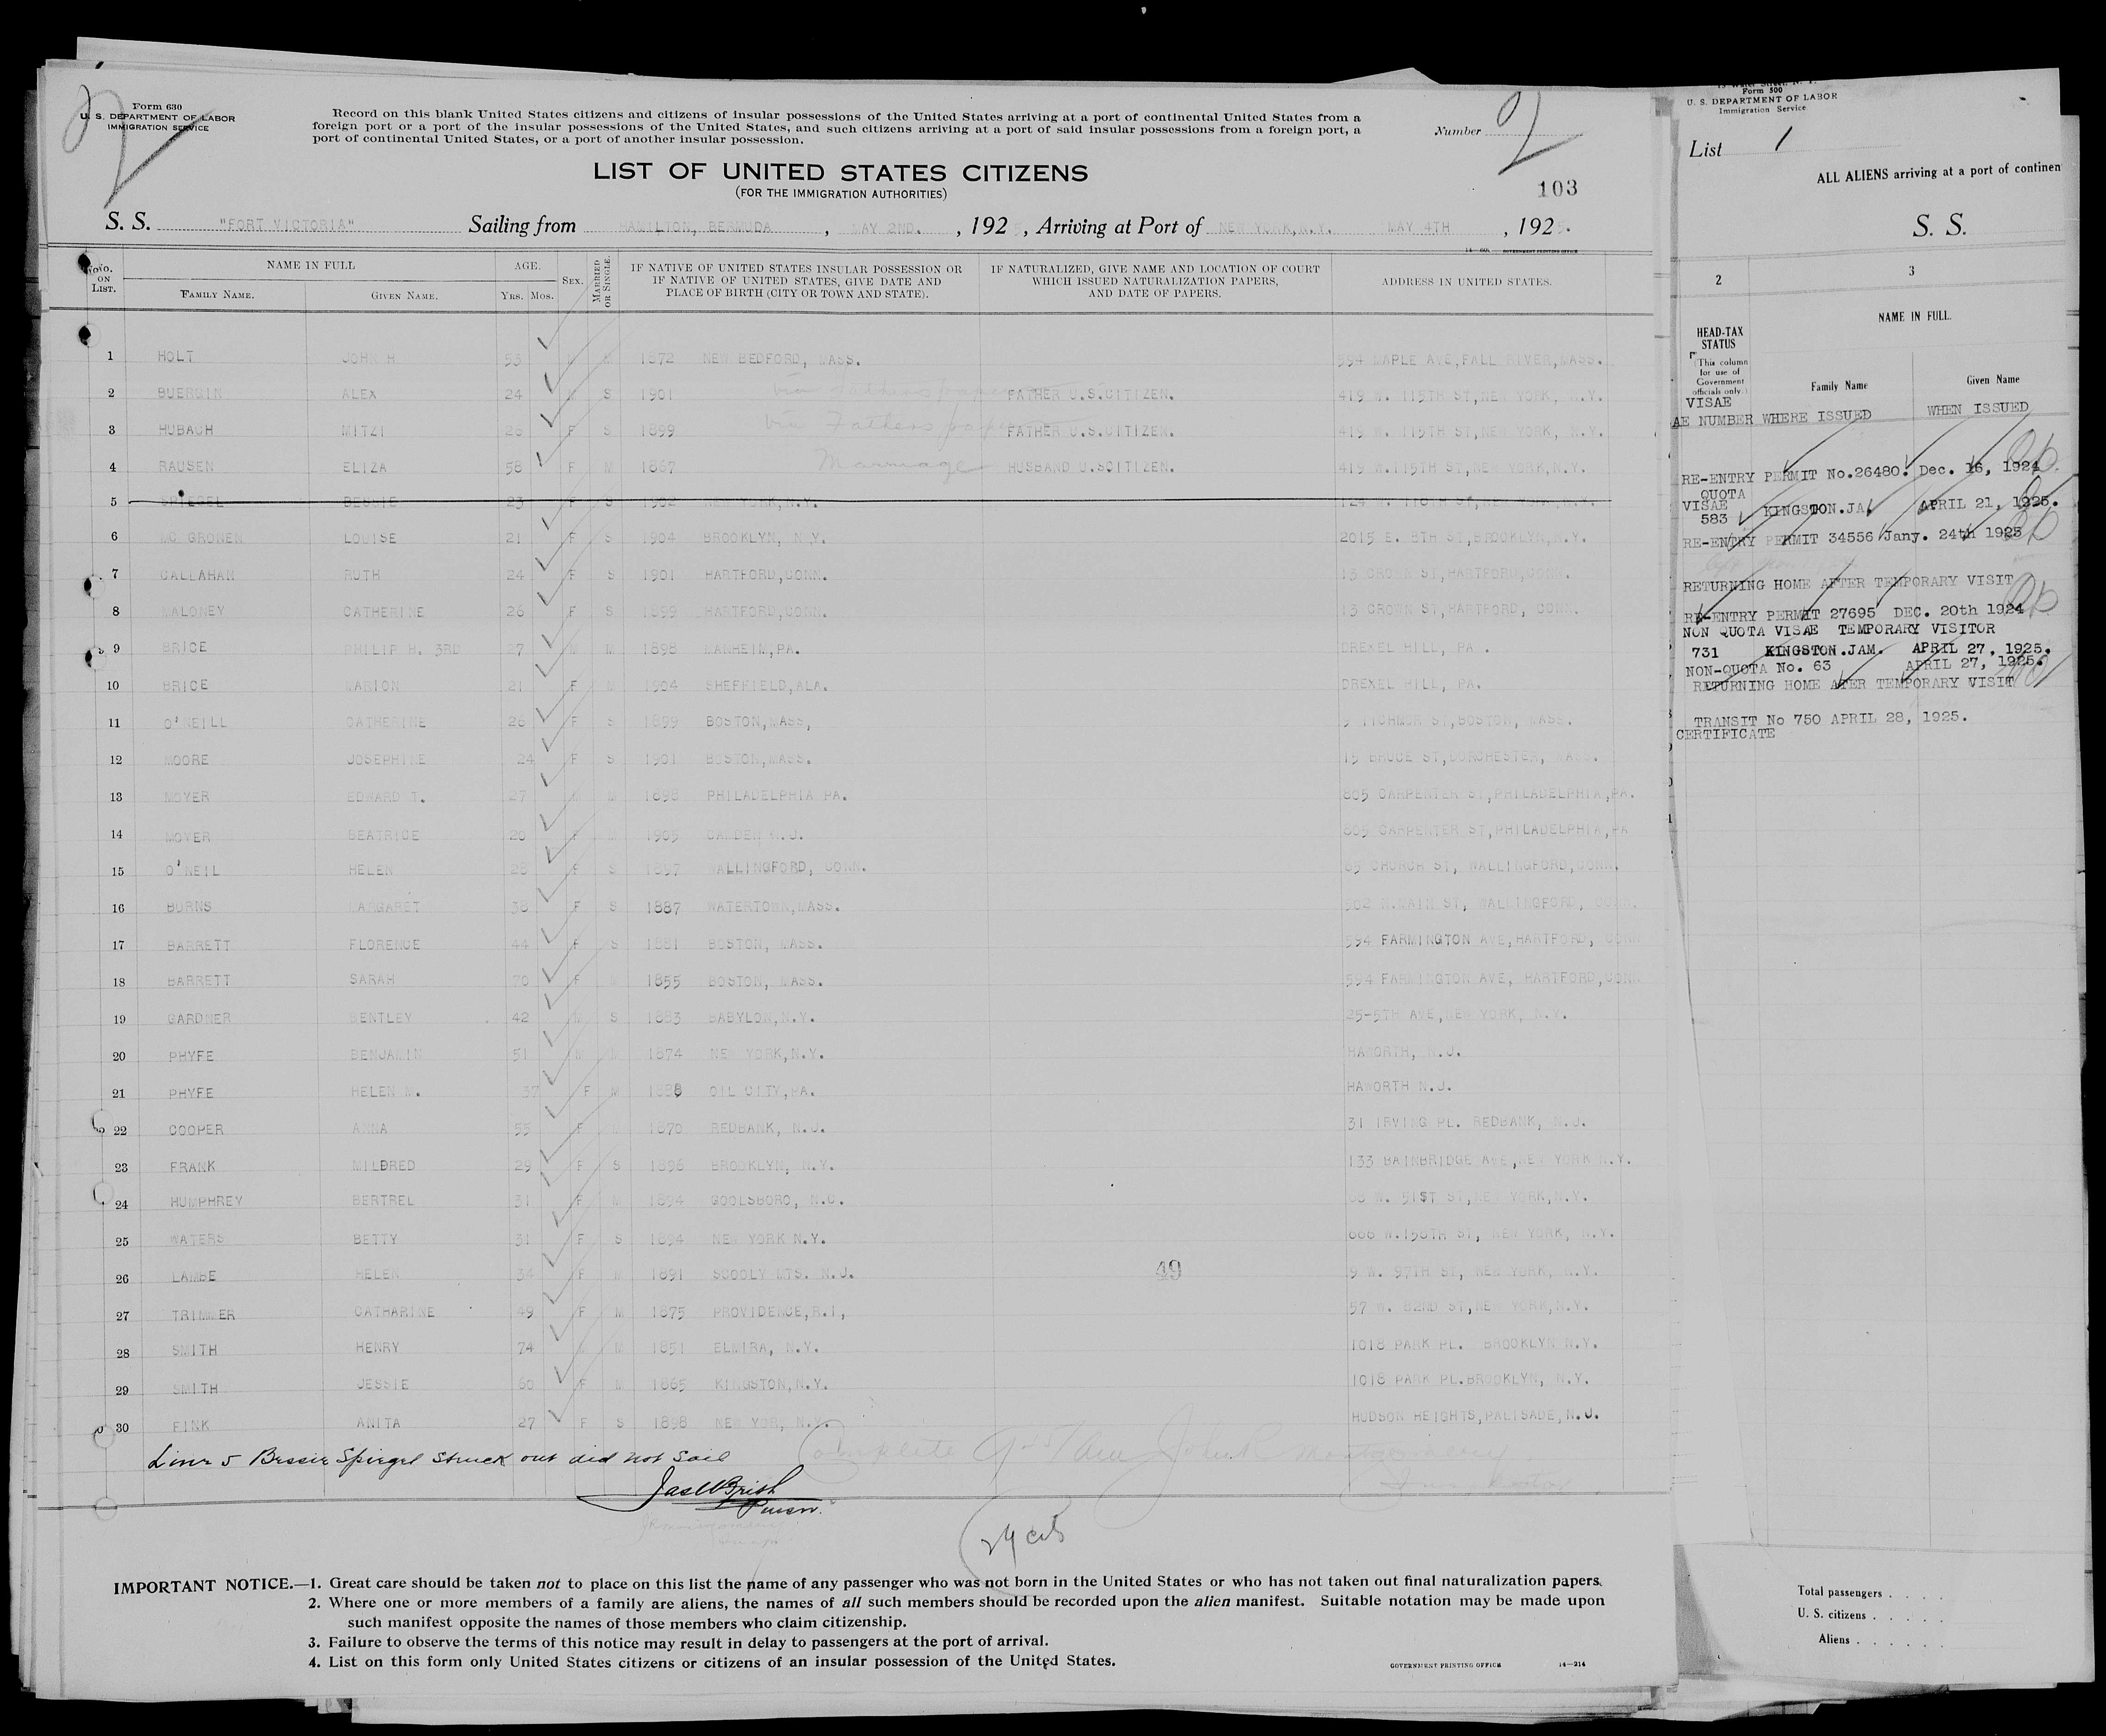 Form 630
U. S. DEPARTMENT OF LABOR
IMMIGRATION SERVICE
Record on this blank United States citizens and citizens of insular possessions of the United States arriving at a port of continental United States from a
foreign port or a port of the insular possessions of the United States, and such citizens arriving at a port of said insular possessions from a foreign port, a
port of continental United States, or a port of another insular possession.
Number 2
LIST OF UNITED STATES CITIZENS
(FOR THE IMMIGRATION AUTHORITIES)
103
S. S. "FORT VICTORIA" Sailing from HAMILTON, BERMUDA, MAY 2ND., 1925, Arriving at Port of NEW YORK,N.Y. MAY 4TH, 1925.
NO. ON LIST. NAME IN FULL FAMILY NAME. GIVEN NAME. AGE. YRS. MOS. SEX. MARRIED OR SINGLE. IF NATIVE OF UNITED STATES INSULAR POSSESSION OR IF NATIVE OF UNITED STATES, GIVE DATE AND PLACE OF BIRTH (CITY OR TOWN AND STATE). IF NATURALIZED, GIVE NAME AND LOCATION OF COURT WHICH ISSUED NATURALIZATION PAPERS, AND DATE OF PAPERS. ADDRESS IN UNITED STATES.
1 HOLT JOHN H 53 M M 1872 NEW BEDFORD, MASS. 394 MAPLE AVE,FALL RIVER,MASS.
2 ALEX 24 S 1901 via Fathers papers FATHER U.S.CITIZEN. 419 W. 115TH ST,NEW YORK, N.Y.
3 HUBACH MITZI 26 F S 1899 via Fathers papers FATHER U.S.CITIZEN. 419 W. 115TH ST,NEW YORK, N.Y.
4 RAUSEN ELIZA 58 F M 1867 Marriage HUSBAND U.SCITIZEN. 419 W.115TH ST,NEW YORK,N.Y.
5 SPIEGEL BESSIE 23 F S 1902 NEW YORK,N.Y. 124 W. 116TH ST,NEW YORK,N.Y.
6 MC GRONEN LOUISE 21 F S 1904 BROOKLYN, N.Y. 2015 E. 8TH ST,BROOKLYN,N.Y.
7 CALLAHAN RUTH 24 F S 1901 HARTFORD,CONN. 13 CROWN ST,HARTFORD,CONN.
8 MALONEY CATHERINE 26 F S 1899 HARTFORD,CONN. 13 CROWN ST,HARTFORD, CONN.
9 BRICE PHILIP H. 3RD 27 M M 1898 MANHEIM,PA. DREXEL HILL, PA .
10 BRICE MARION 21 F M 1904 SHEFFIELD,ALA. DREXEL HILL, PA.
11 O'NEILL CATHERINE 26 F S 1899 BOSTON,MASS, ST,BOSTON, MASS.
12 MOORE JOSEPHINE 24 F S 1901 BOSTON,MASS. 15 BRUCE ST,DORCHESTER, MASS.
13 MOYER EDWARD T. 27 M M 1898 PHILADELPHIA PA. 805 CARPENTER ST,PHILADELPHIA,PA.
14 MOYER BEATRICE 20 F M 1905 CAMDEN N.J. 805 CARPENTER ST,PHILADELPHIA,PA
15 O'NEIL HELEN 28 F S 1897 WALLINGFORD, CONN. CHURCH ST, WALLINGFORD,CONN.
16 BURNS MARGARET 38 F S 1887 WATERTOWN,MASS. N.MAIN ST, WALLINGFORD, CONN.
17 BARRETT FLORENCE 44 F S 1881 BOSTON, MASS. 594 FARMINGTON AVE,HARTFORD, CONN
18 BARRETT SARAH 70 F M 1855 BOSTON, MASS. 594 FARMINGTON AVE, HARTFORD,CONN.
19 GARDNER BENTLEY 42 M S 1883 BABYLON,N.Y. 25-5TH AVE,NEW YORK, N.Y.
20 PHYFE BENJAMIN 51 M M 1874 NEW YORK,N.Y. HAWORTH, N.J.
21 PHYFE HELEN M. 37 F M 1888 OIL CITY,PA. HAWORTH N.J.
22 COOPER ANNA 55 F M 1870 REDBANK, N.J. 31 IRVING PL. REDBANK, N.J.
23 FRANK MILDRED 29 F S 1896 BROOKLYN, N.Y. 133 BAINBRIDGE AVE,NEW YORK N.Y.
24 HUMPHREY BERTREL 31 F M 1894 GOOLSBORO, N.C. W. 51ST ST,NEW YORK,N.Y.
25 WATERS BETTY 31 F S 1894 NEW YORK N.Y. W.158TH ST, NEW YORK, N.Y.
26 LAMBE HELEN 34 F M 1891 SCOOLY MTS. N.J. 49 9 W. 97TH ST, NEW YORK, N.Y.
27 TRIMMER CATHARINE 49 F M 1875 PROVIDENCE,R.I, 57 W. 82ND ST,NEW YORK,N.Y.
28 SMITH HENRY 74 M M 1851 ELMIRA, N.Y. 1018 PARK PL. BROOKLYN N.Y.
29 SMITH JESSIE 60 F M 1865 KINGSTON,N.Y. 1018 PARK PL.BROOKLYN, N.Y.
30 FINK ANITA 27 F S 1898 NEW YORK, N.Y. HUDSON HEIGHTS,PALISADE,N.J.
Line 5 Bessie Spiegel Struck out did not Sail
Complete John R Montgomery
Purser.
IMPORTANT NOTICE.—1. Great care should be taken not to place on this list the name of any passenger who was not born in the United States or who has not taken out final naturalization papers.
2. Where one or more members of a family are aliens, the names of all such members should be recorded upon the alien manifest. Suitable notation may be made upon
such manifest opposite the names of those members who claim citizenship.
3. Failure to observe the terms of this notice may result in delay to passengers at the port of arrival.
4. List on this form only United States citizens or citizens of an insular possession of the United States.
GOVERNMENT PRINTING OFFICE 14—214
Form 500
U. S. DEPARTMENT OF LABOR
Immigration Service
List 1
ALL ALIENS arriving at a port of continen
S. S.
2 3
HEAD-TAX STATUS
(This column for use of Government officials only.)
NAME IN FULL.
Family Name Given Name
VISAE
AE NUMBER WHERE ISSUED WHEN ISSUED
RE-ENTRY PERMIT No.26480. Dec. 16, 1924.
QUOTA
VISAE KINGSTON.JA. APRIL 21, 1925.
583
RE-ENTRY PERMIT 34556 Jany. 24th 1925
RETURNING HOME AFTER TEMPORARY VISIT
RE-ENTRY PERMIT 27695 DEC. 20th 1924
NON QUOTA VISAE TEMPORARY VISITOR
731 KINGSTON.JAM. APRIL 27, 1925.
NON-QUOTA No. 63 APRIL 27, 1925.
RETURNING HOME AFER TEMPORARY VISIT
TRANSIT No 750 APRIL 28, 1925.
CERTIFICATE
Total passengers . . . .
U. S. citizens . . . . .
Aliens . . . . . .